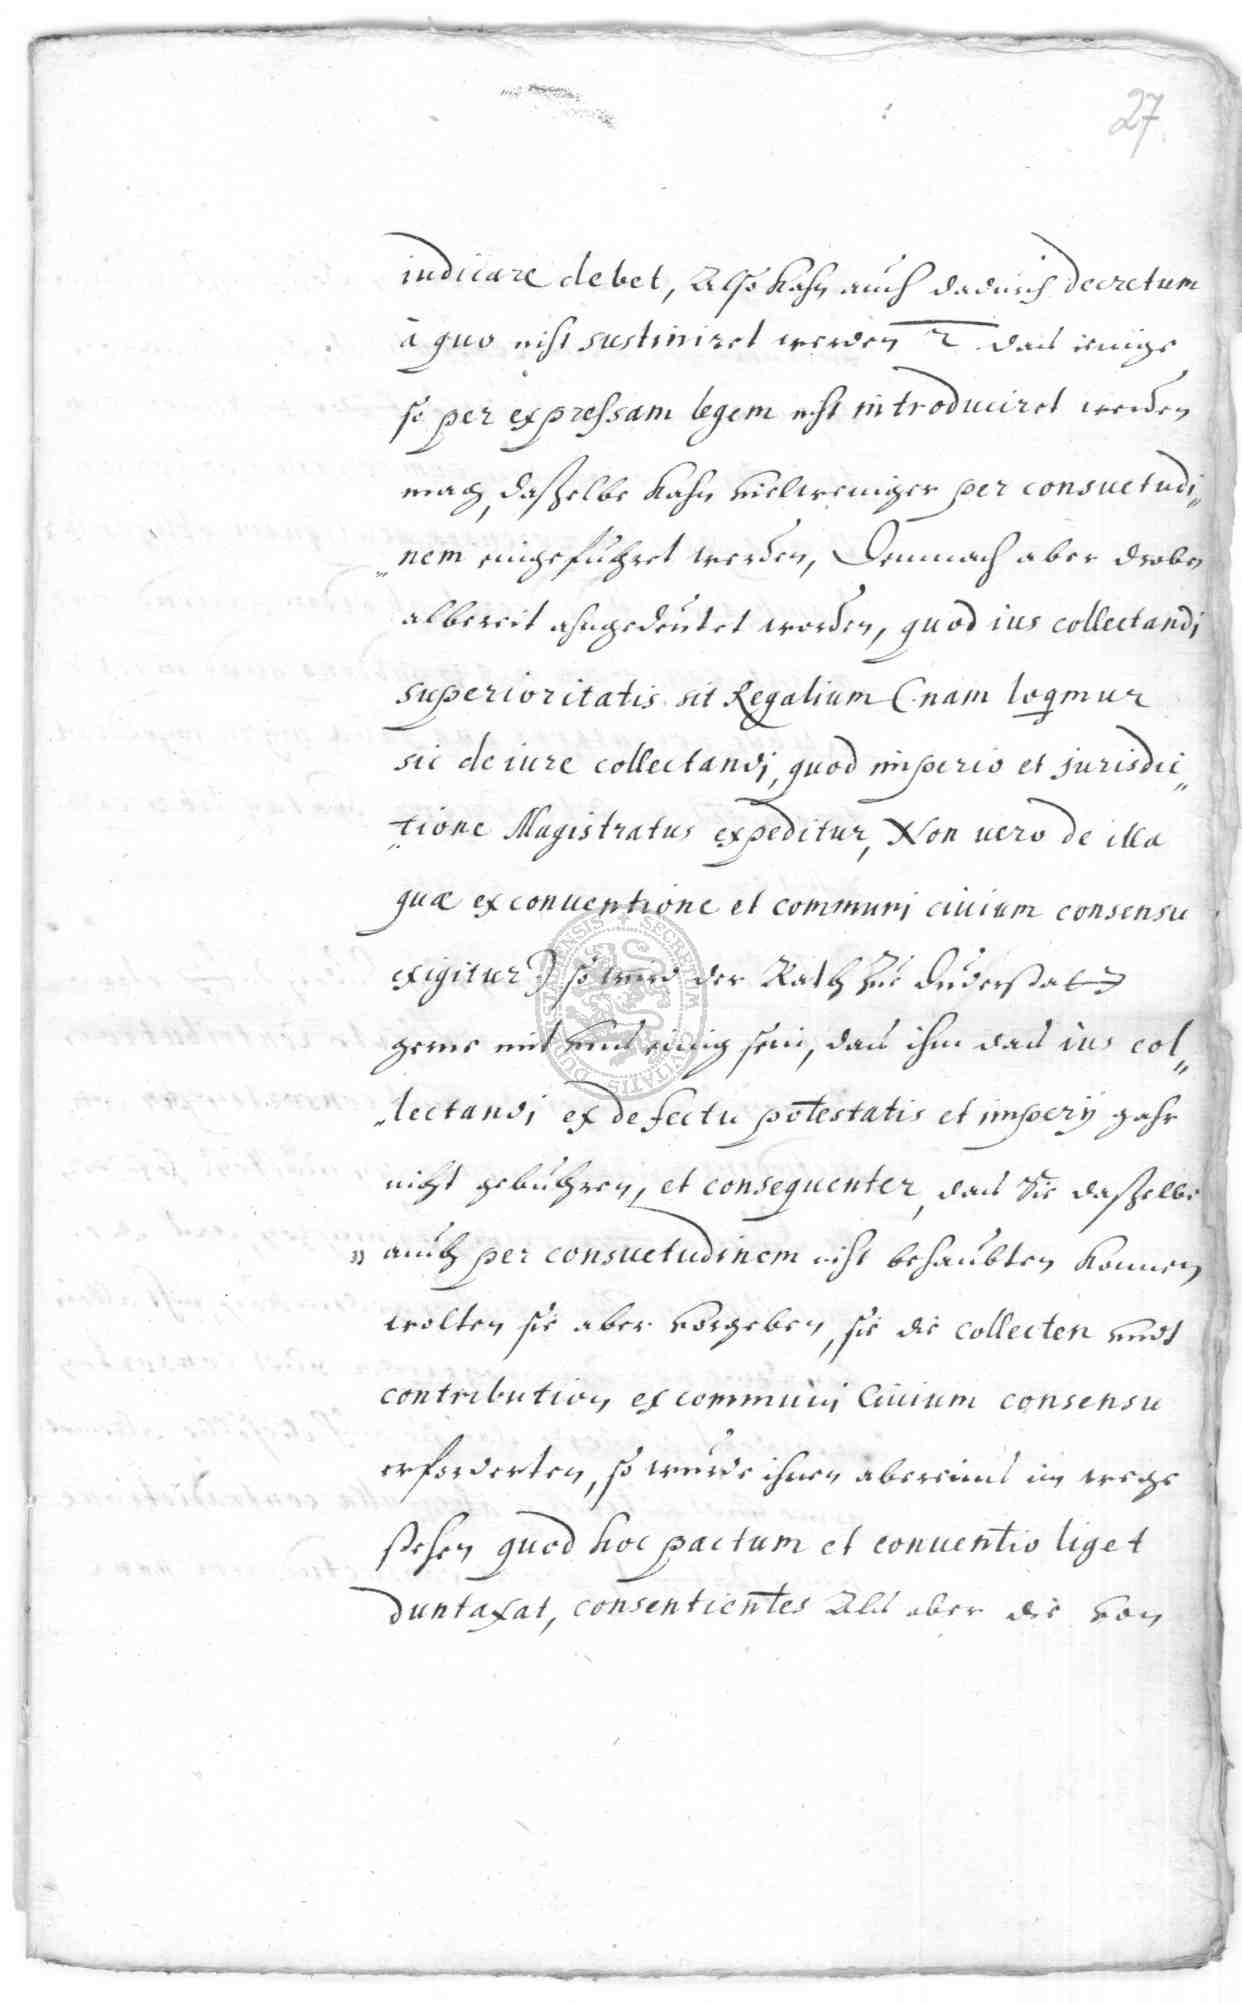 27
iudicare debet, Also kahn auch dadurch decretum
à quo nicht sustiniret werden
das ienige
so per expressam legem nicht introduciret werden
mag, daßelbe kahn vielweniger per consuetudi„
„nem eingefuhret werden, Demnach aber droben
albereit ahngedeutet worden, quod ius collectandi
superioritatis sit Regalium (nam loqmur
sic de iure collectandi, quod imperio et jurisdic„
„tione Magistratus expeditur, Non uero de illa
quæ ex conuentione et communi ciuium consensu
exigitur) so wird der Rath zue Duderstadt
gerne mit uns einig sein, das ihm das ius col„
„lectandi ex defectu potestatis et imperij gahr
nicht gebuhren, et consequenter, das Sie daßelbe
„ auch per consuetudinem nicht behaubten konnen
wolten sie aber vorgeben, sie die collecten undt
contribution ex communi Ciuium consensu
erforderten, so wurde ihnen abereins im wege
stehen quod hoc pactum et conuentio liget
duntaxat, consentientes Als aber die von
SECRETUM CIVITATIS